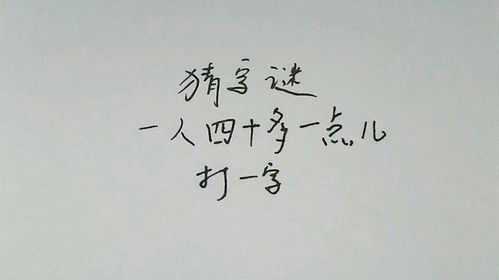 猜字谜
一人四十多一点儿
打一字